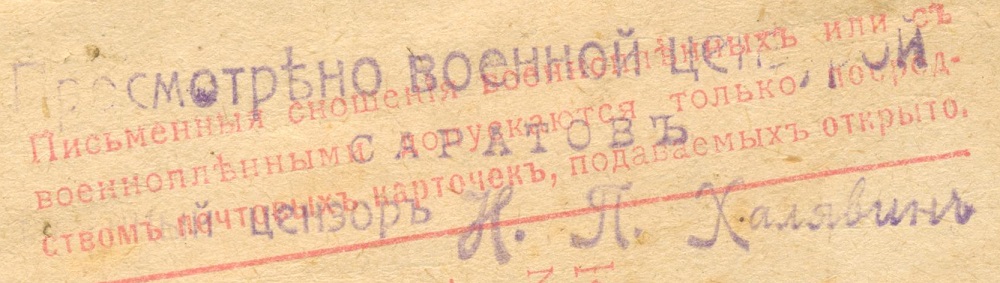 Просмотрѣно военной цензурой
САРАТОВЪ
й цензоръ Н. П. Халявинъ
Письменныя сношенія военноплѣнныхъ или съ
военноплѣнными допускаются только посред-
ствомъ почтовыхъ карточекъ, подаваемыхъ открыто.